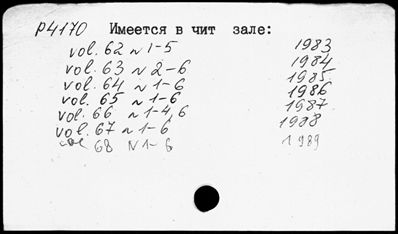 P4170 Имеется в чит зале:
vol. 62 N 1-5 1983
vol. 63 N 2-6 1984
vol. 64 N 1-6 1985
vol. 65 N 1-6 1986
vol. 66 N 1-4,6 1987
vol. 67 N 1-6 1988
vol 68 N 1-6 1989